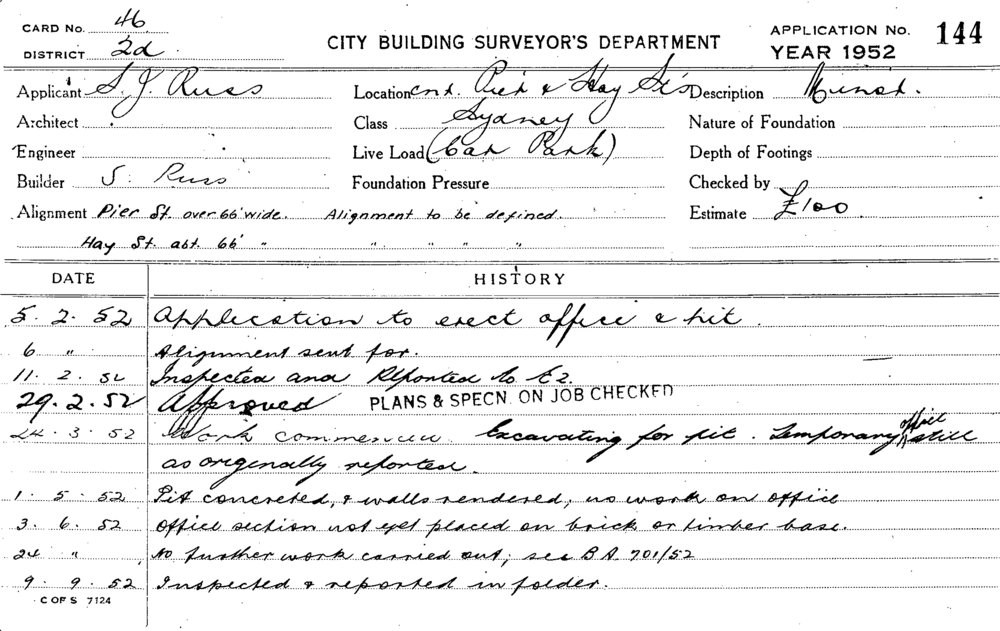 CARD No. 46
DISTRICT 2d.
CITY BUILDING SURVEYOR'S DEPARTMENT
APPLICATION No. 144
YEAR 1952
Applicant S. J. Russ
Location cnr. Pier & Hay St's
Description Minor.
Architect
Class Sydney
Nature of Foundation
Engineer
Live Load (Car Park)
Depth of Footings
Builder S. Russ
Foundation Pressure
Checked by
Alignment Pier St. over 66' wide. Alignment to be defined.
Estimate £100
Hay St. abt. 66' " " " " "
DATE HISTORY
5. 2. 52 Application to erect office & pit.
6 " Alignment sent for.
11. 2. 52 Inspected and Reported to E2.
29. 2. 52 Approved PLANS & SPECN. ON JOB CHECKED
24. 3. 52 Work commenced. Excavating for pit. Temporary office still
as originally reported.
1. 5. 52 Pit concreted, & walls rendered; no work on office
3. 6. 52 Office section not yet placed on brick or timber base.
24 " No further work carried out; see B A 701/52
9. 9. 52 Inspected & reported in folder.
C OF S 7124